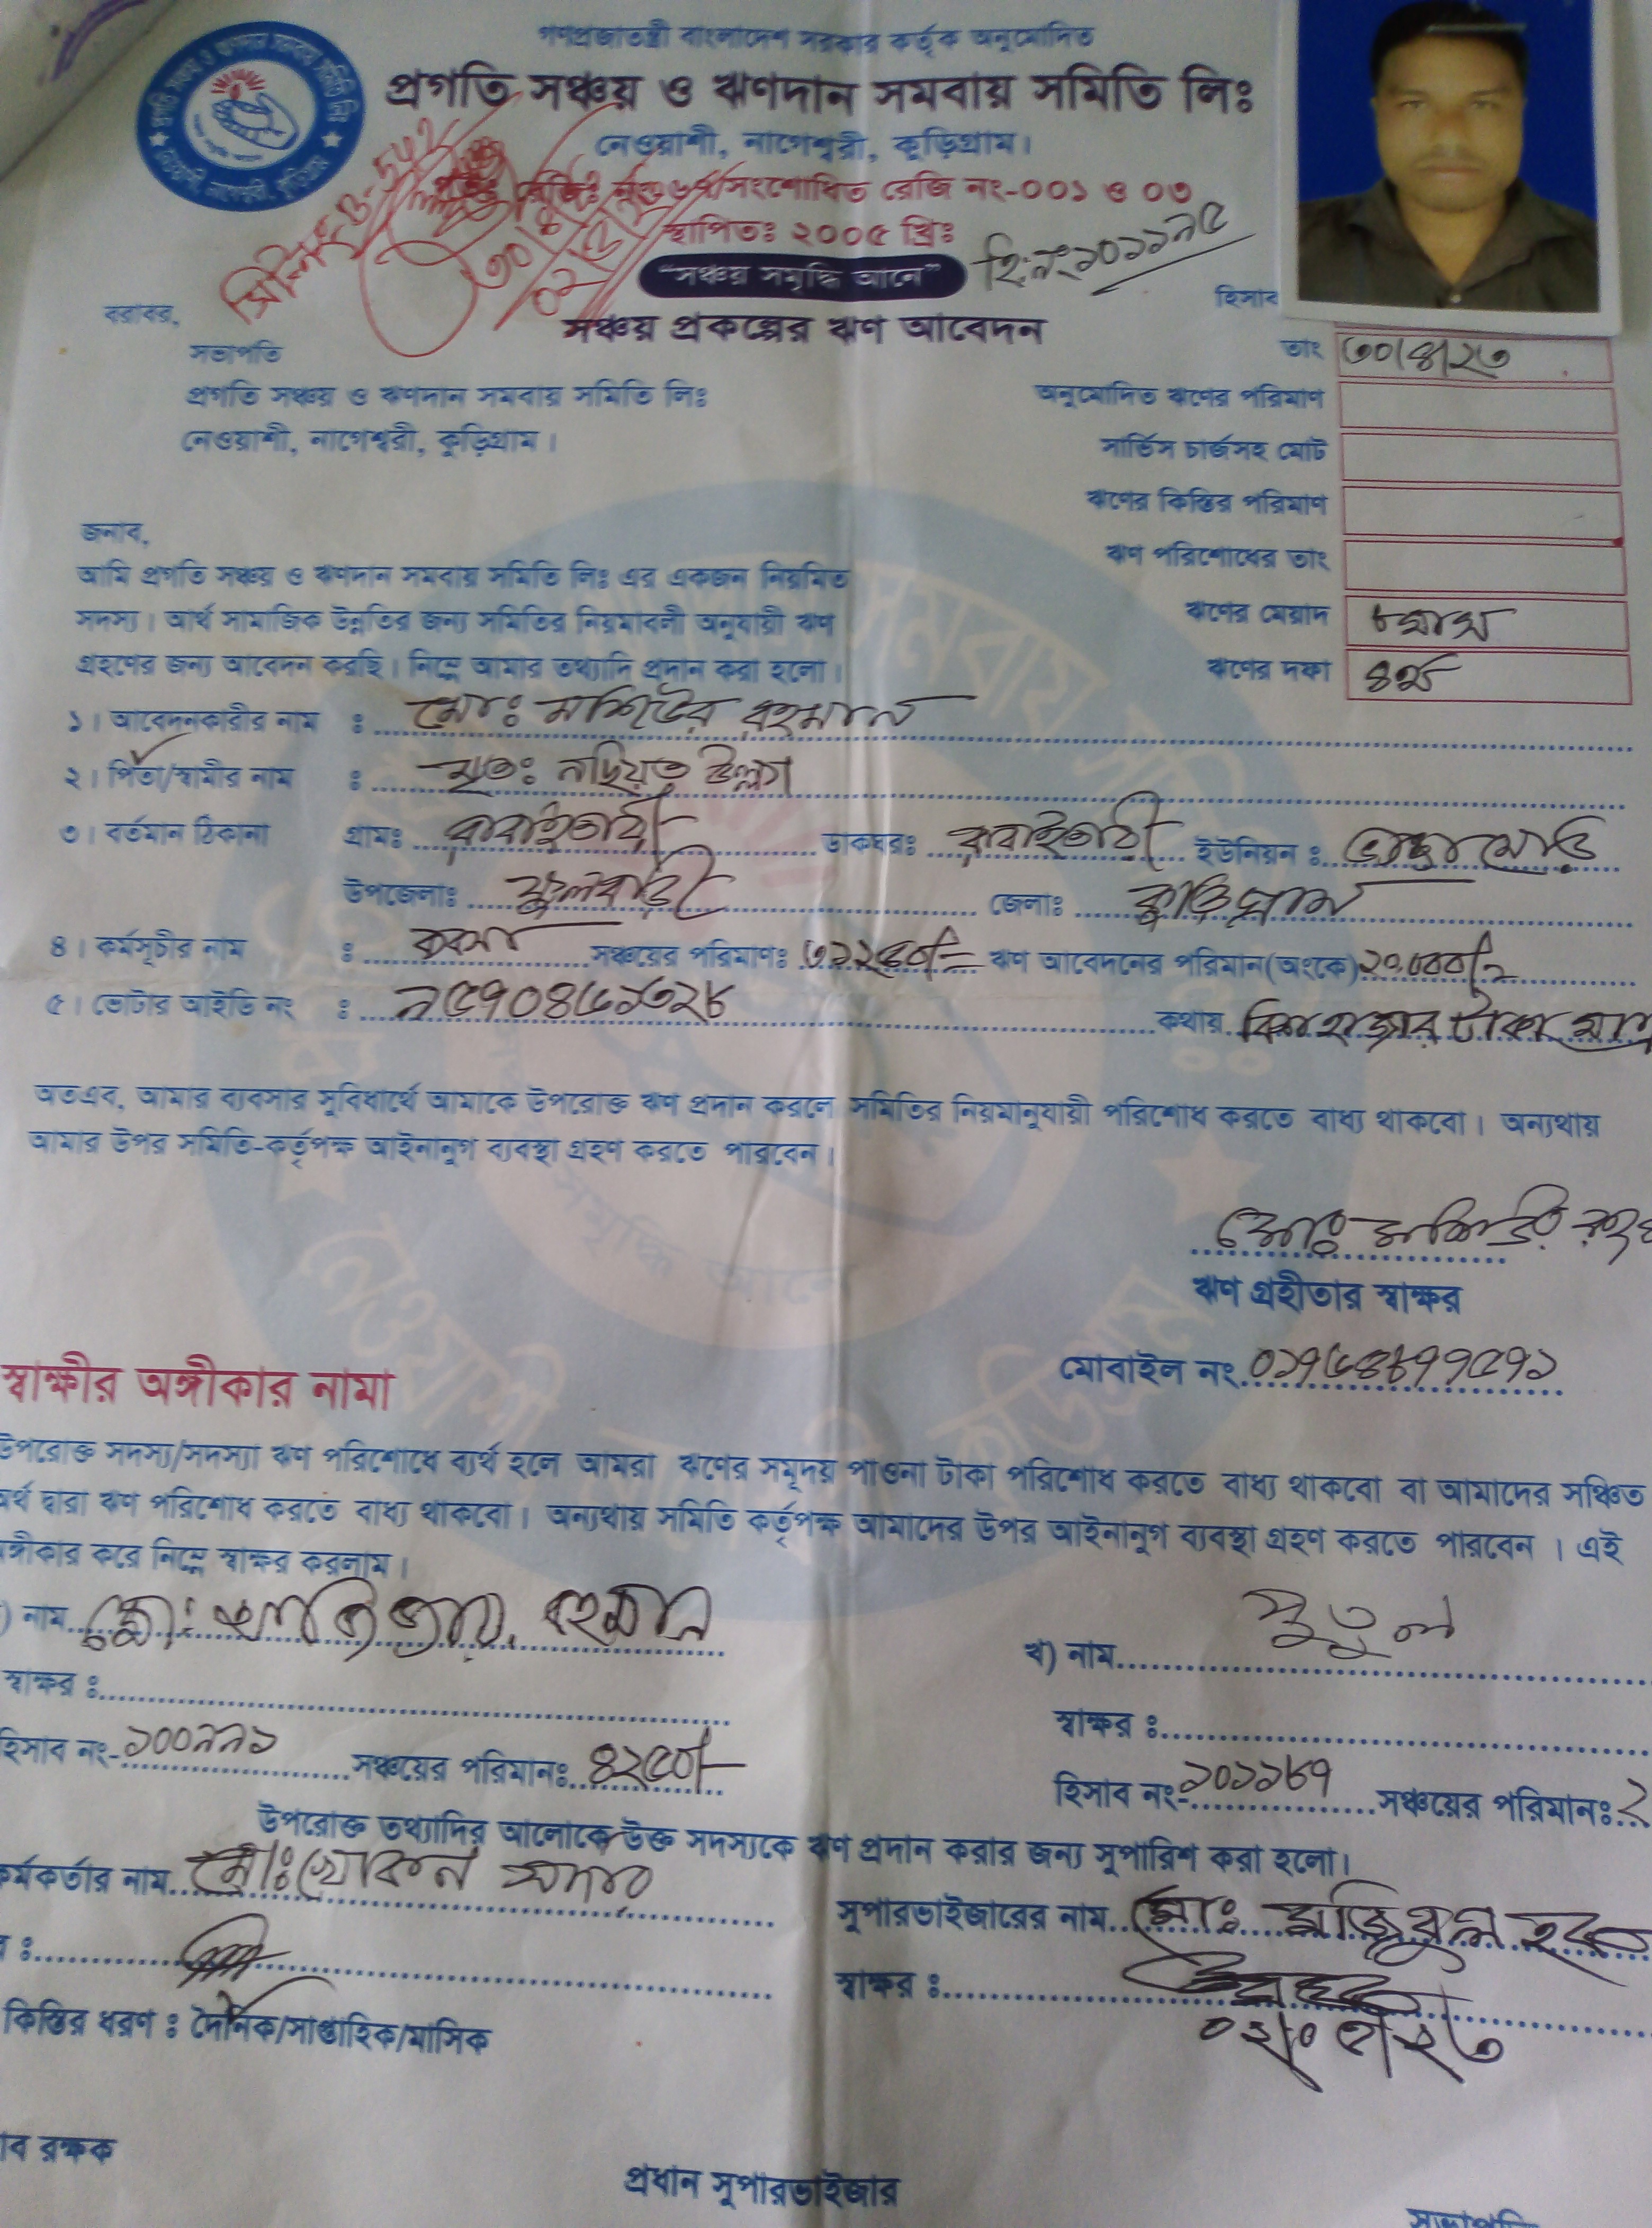 গণপ্রজাতন্ত্রী বাংলাদেশ সরকার কর্তৃক অনুমোদিত
প্রগতি সঞ্চয় ও ঋণদান সমবায় সমিতি লিঃ
নেওয়াশী, নাগেশ্বরী, কুড়িগ্রাম।
সংশোধিত রেজি নং-০০১ ও ০৩
স্থাপিতঃ ২০০৫ খ্রিঃ
"সঞ্চয় সমৃদ্ধি আনে" হি:নং১০১১৯৫
হিসাব
বরাবর, সঞ্চয় প্রকল্পের ঋণ আবেদন
সভাপতি তাং ৩০/৪/২৩
প্রগতি সঞ্চয় ও ঋণদান সমবায় সমিতি লিঃ অনুমোদিত ঋণের পরিমাণ
নেওয়াশী, নাগেশ্বরী, কুড়িগ্রাম। সার্ভিস চার্জসহ মোট
ঋণের কিস্তির পরিমাণ
জনাব, ঋণ পরিশোধের তাং
আমি প্রগতি সঞ্চয় ও ঋণদান সমবায় সমিতি লিঃ এর একজন নিয়মিত
সদস্য। আর্থ সামাজিক উন্নতির জন্য সমিতির নিয়মাবলী অনুযায়ী ঋণ ঋণের মেয়াদ ৮মাস
গ্রহণের জন্য আবেদন করছি। নিম্নে আমার তথ্যাদি প্রদান করা হলো। ঋণের দফা ৪র্থ
১। আবেদনকারীর নাম : মোঃ মশিউর রহমান
২। পিতা/স্বামীর নাম : মৃতঃ নছিয়ত উল্লা
৩। বর্তমান ঠিকানা গ্রামঃ রাবাইতারী ডাকঘরঃ রাবাইতারী ইউনিয়ন : ভাঙ্গামোড়
উপজেলাঃ ফুলবাড়ী জেলাঃ কুড়িগ্রাম
৪। কর্মসূচীর নাম : সঞ্চয়ের পরিমাণঃ ৩১২৫০/= ঋণ আবেদনের পরিমান(অংকে) ২০,০০০/=
৫। ভোটার আইডি নং : ৯৫৭০৪৬১৩২৮ কথায় বিশ হাজার টাকা মাত্র
অতএব, আমার ব্যবসার সুবিধার্থে আমাকে উপরোক্ত ঋণ প্রদান করলে সমিতির নিয়মানুযায়ী পরিশোধ করতে বাধ্য থাকবো। অন্যথায়
আমার উপর সমিতি-কর্তৃপক্ষ আইনানুগ ব্যবস্থা গ্রহণ করতে পারবেন।
মোঃ মশিউর রহ
ঋণ গ্রহীতার স্বাক্ষর
মোবাইল নং ০১৭৬৪৮৭৭৫৭১
স্বাক্ষীর অঙ্গীকার নামা
উপরোক্ত সদস্য/সদস্যা ঋণ পরিশোধে ব্যর্থ হলে আমরা ঋণের সমূদয় পাওনা টাকা পরিশোধ করতে বাধ্য থাকবো বা আমাদের সঞ্চিত
অর্থ দ্বারা ঋণ পরিশোধ করতে বাধ্য থাকবো। অন্যথায় সমিতি কর্তৃপক্ষ আমাদের উপর আইনানুগ ব্যবস্থা গ্রহণ করতে পারবেন । এই
ঙ্গীকার করে নিম্নে স্বাক্ষর করলাম।
) নাম মোঃ রহমান
খ) নাম পুতুল
স্বাক্ষর :
স্বাক্ষর :
হিসাব নং- ১০০৯৯১ সঞ্চয়ের পরিমানঃ ৪২৫০/-
হিসাব নং- ১০১১৮৭ সঞ্চয়ের পরিমানঃ ২
উপরোক্ত তথ্যাদির আলোকে উক্ত সদস্যকে ঋণ প্রদান করার জন্য সুপারিশ করা হলো।
কর্মকর্তার নাম মোঃ খোকন
সুপারভাইজারের নাম মোঃ হক
স্বাক্ষর :
০২/০৫/২৩
কিস্তির ধরণ : দৈনিক/সাপ্তাহিক/মাসিক
াব রক্ষক
প্রধান সুপারভাইজার
সভাপতি